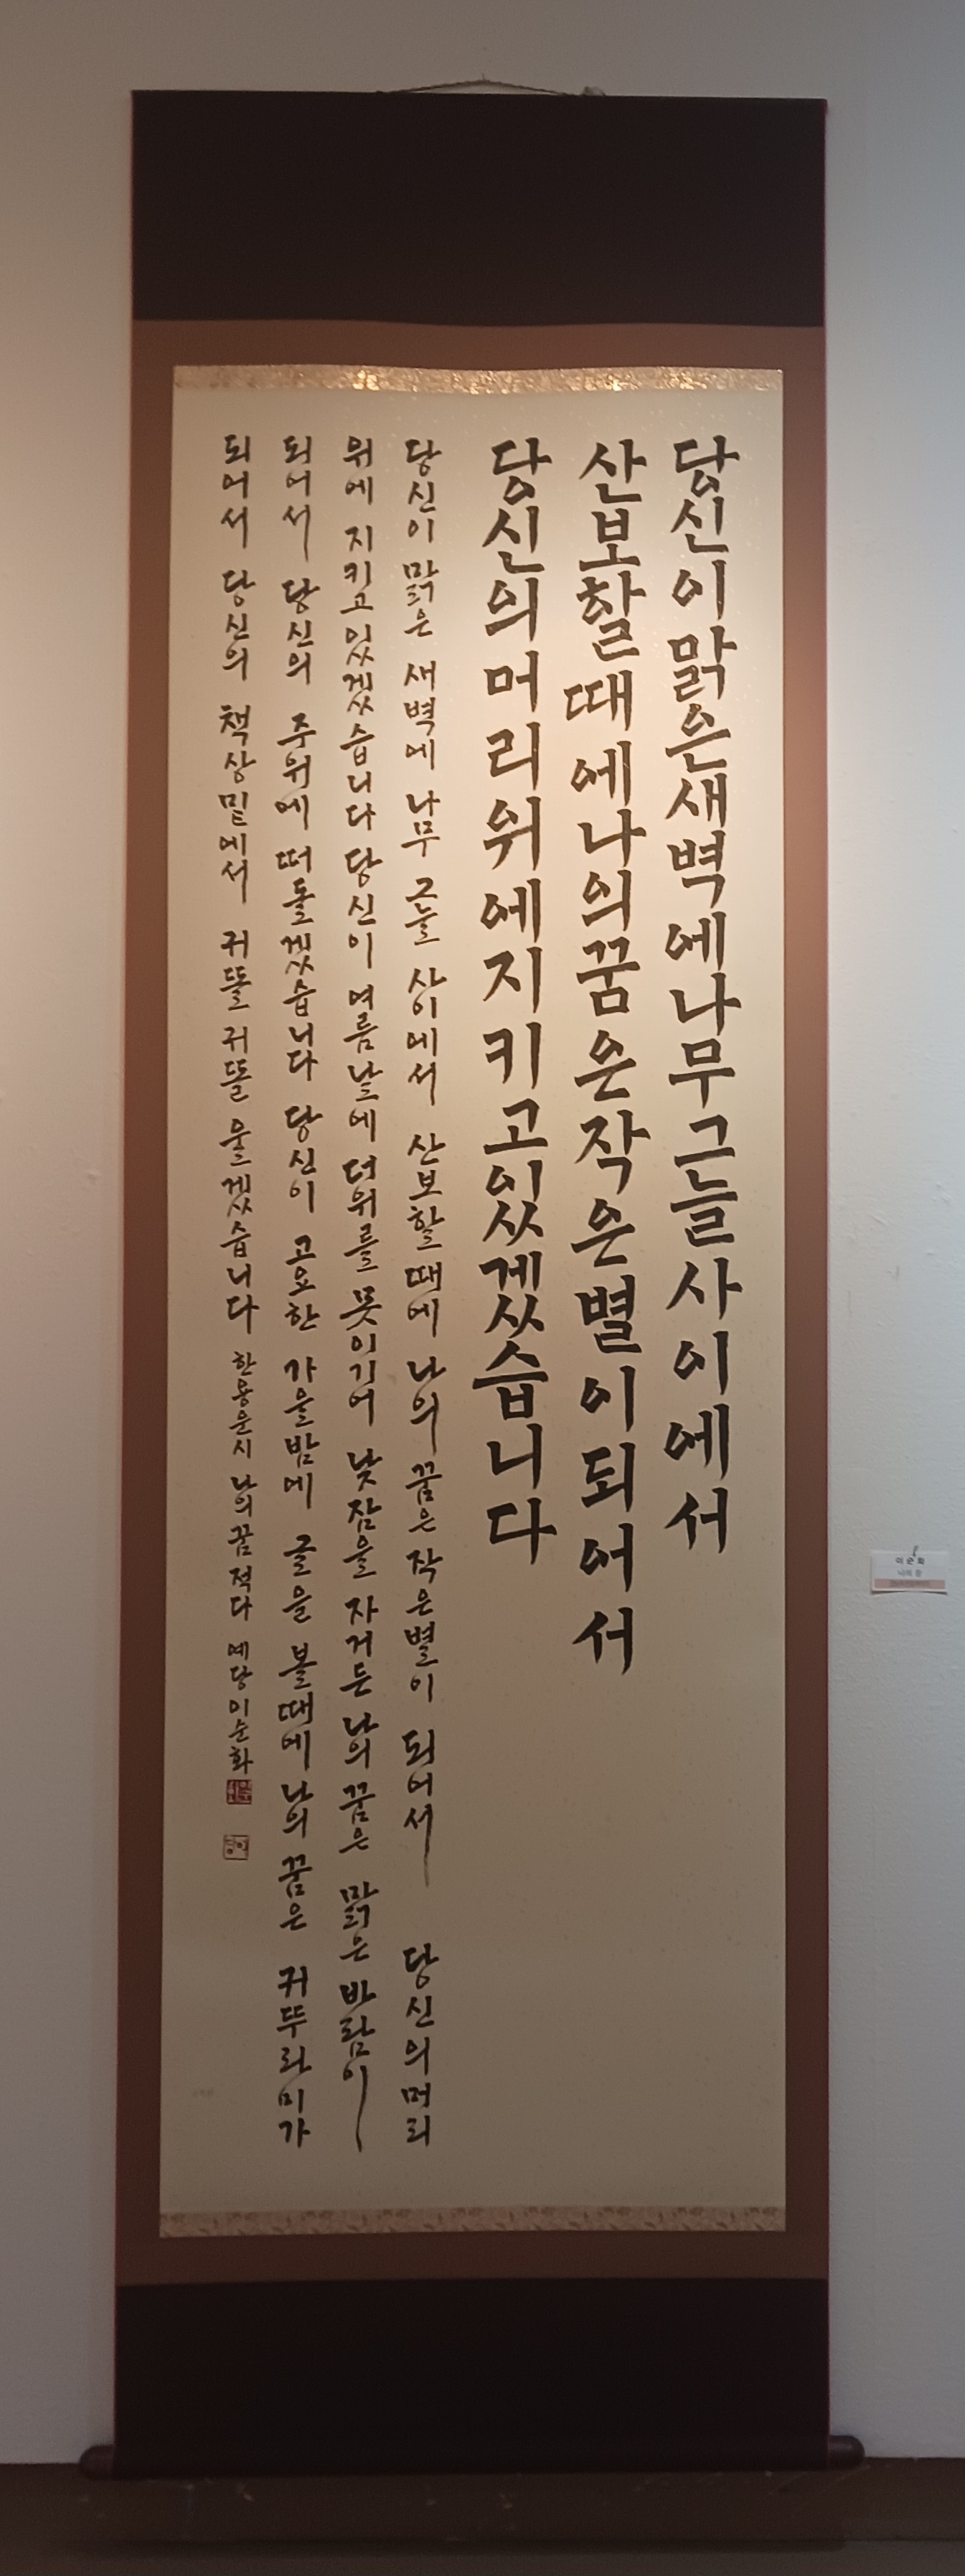 당신이맑은새벽에나무그늘사이에서
산보할때에나의꿈은작은별이되어서
당신의머리위에지키고있겠습니다
당신이 맑은 새벽에 나무 그늘 사이에서 산보할 때에 나의 꿈은 작은별이 되어서 당신의 머리
위에 지키고 있겠습니다 당신이 여름날에 더위를 못이기어 낮잠을 자거든 나의 꿈은 맑은 바람이
되어서 당신의 주위에 떠돌겠습니다 당신이 고요한 가을밤에 글을 볼때에 나의 꿈은 귀뚜라미가
되어서 당신의 책상밑에서 귀똘귀똘 울겠습니다 한용운시 나의꿈 적다 예당 이순화
이순화
나의 꿈